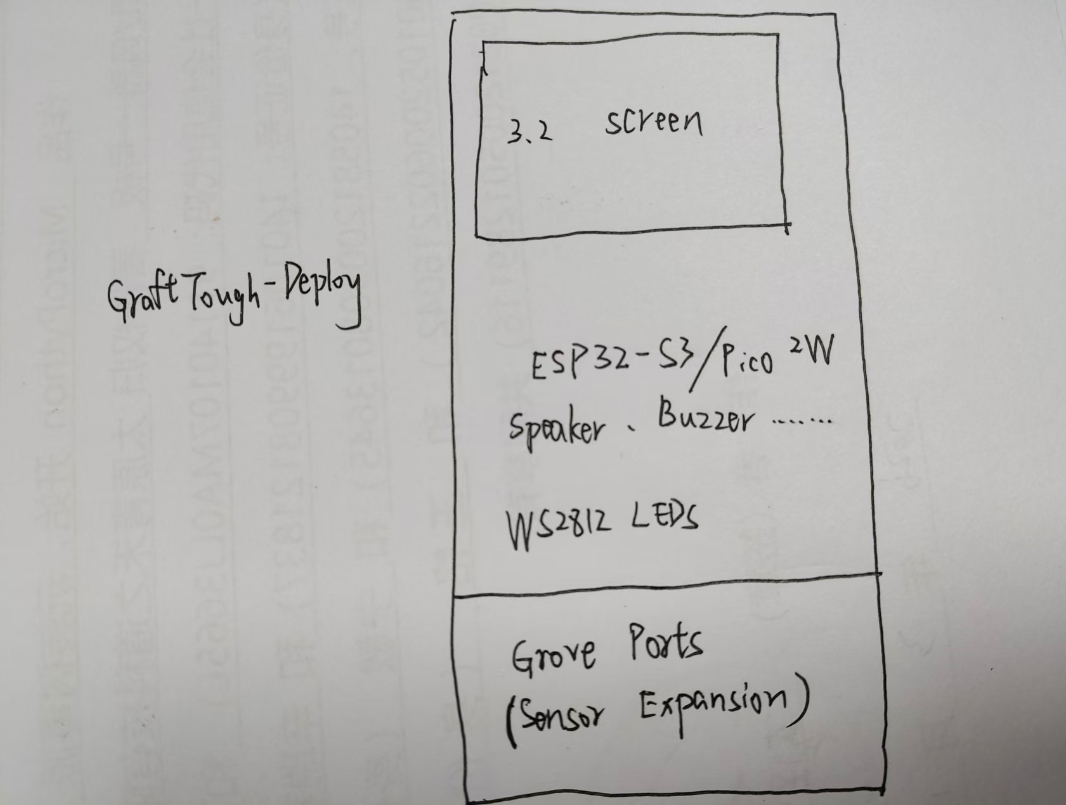 3.2 screen
Graft Tough-Deploy
ESP32-S3/Pico 2W
Speaker、Buzzer .......
WS2812 LEDs
Grove Ports
(Sensor Expansion)